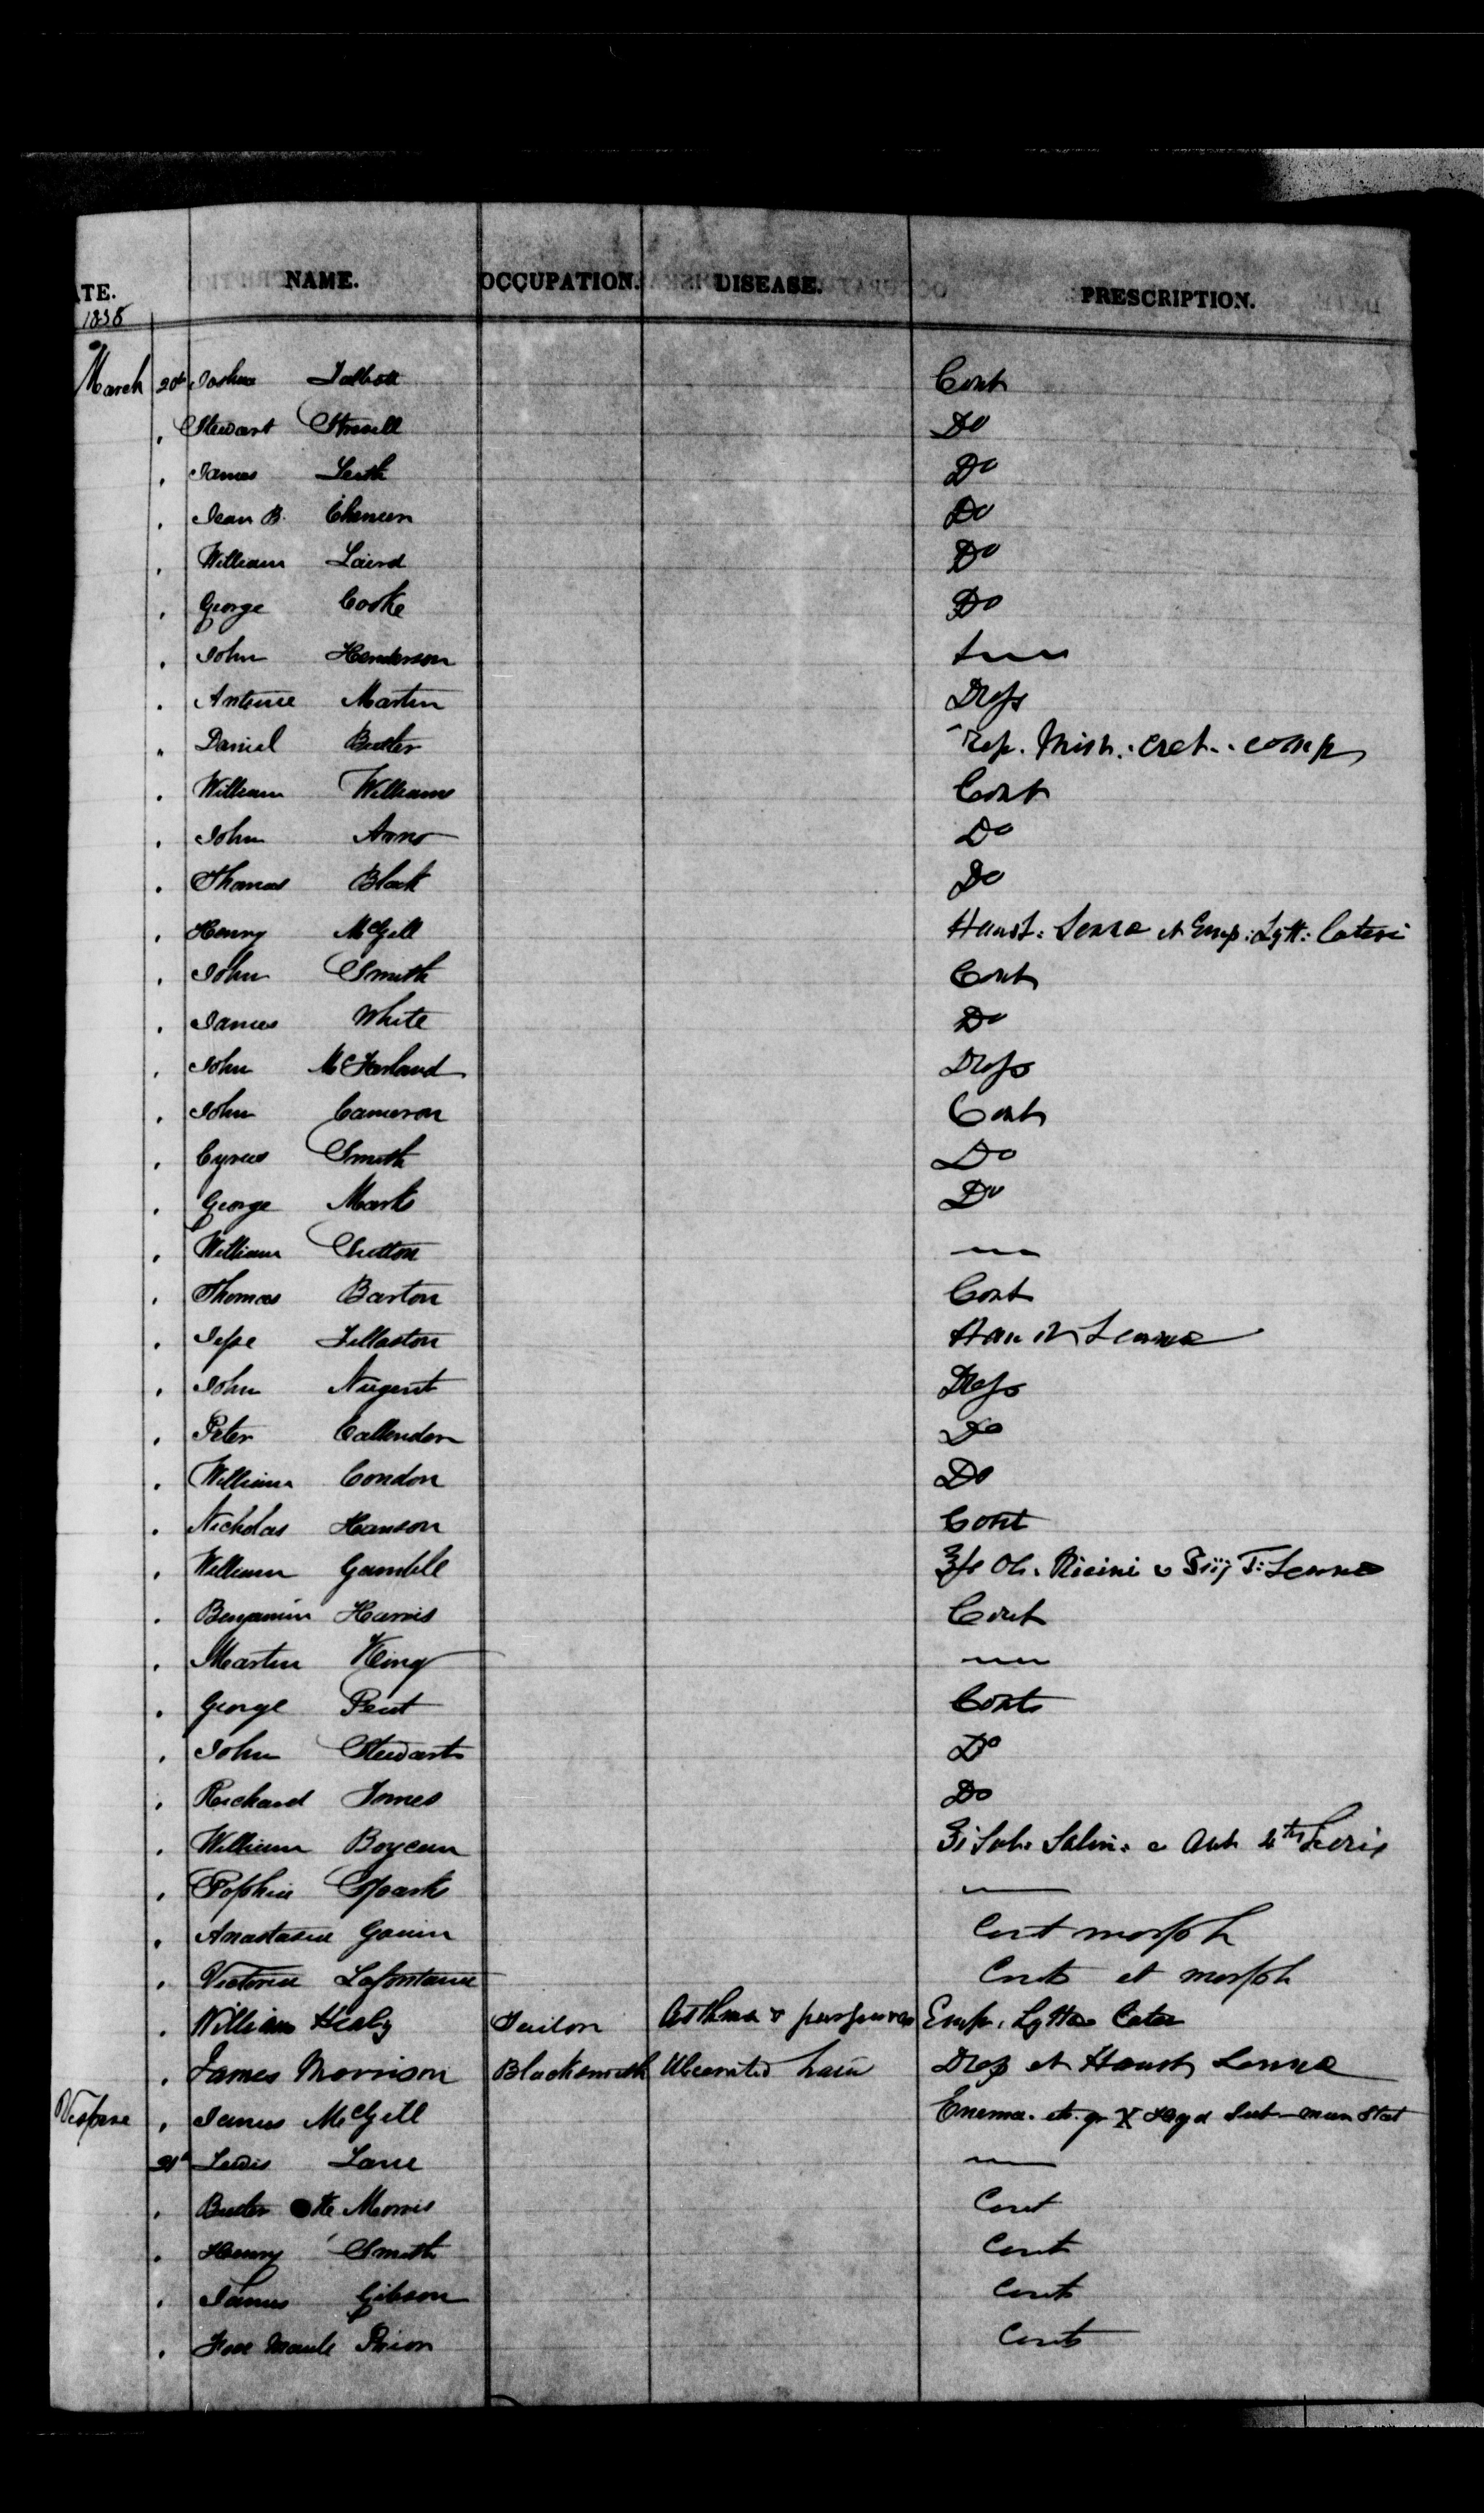 ATE. NAME. OCCUPATION. DISEASE. PRESCRIPTION.
1838
March 20th Joshua Talbott Cont
" Stewart Do
" James Leith Do
" Jean B. Do
" William Laird Do
" George Cooke Do
" John Henderson
" Antoine Martin Drops
" Daniel Butler Rep. Mist. Cret. comp
" William Williams Cont
" John Do
" Thomas Black Do
" Henry McGill Haust. Senna et Emp. Lytt. Lateri
" John Smith Cont
" James White Do
" John McFarland Drops
" John Cameron Cont
" Cyrus Smith Do
" George Marks Do
" William
" Thomas Barton Cont
" Jesse Tillaston Haust Senna
" John Nugent Drops
" Peter Callender Do
" William Condon Do
" Nicholas Hanson Cont
" William Gamble Ol. Ricini Senna
" Benjamin Harris Cont
" Martin King
" George Cont
" John Stewart Do
" Richard Jones Do
" William Sol. Salin. c Ant
" Sophia Sparks
" Anastasie Cont morph
" Victoria Lafontaine Cont et morph
" William Healy Tailor Asthma & Emp. Lyttae
" James Morrison Blacksmith Ulcerated Drops et Haust Senna
Vespere " James McGill Enema. et gr X Hyd Sub mur Stat
21st Lewis Lane
" Butler Morris Cont
" Henry Smith Cont
" James Gibson Cont
" Prion Cont